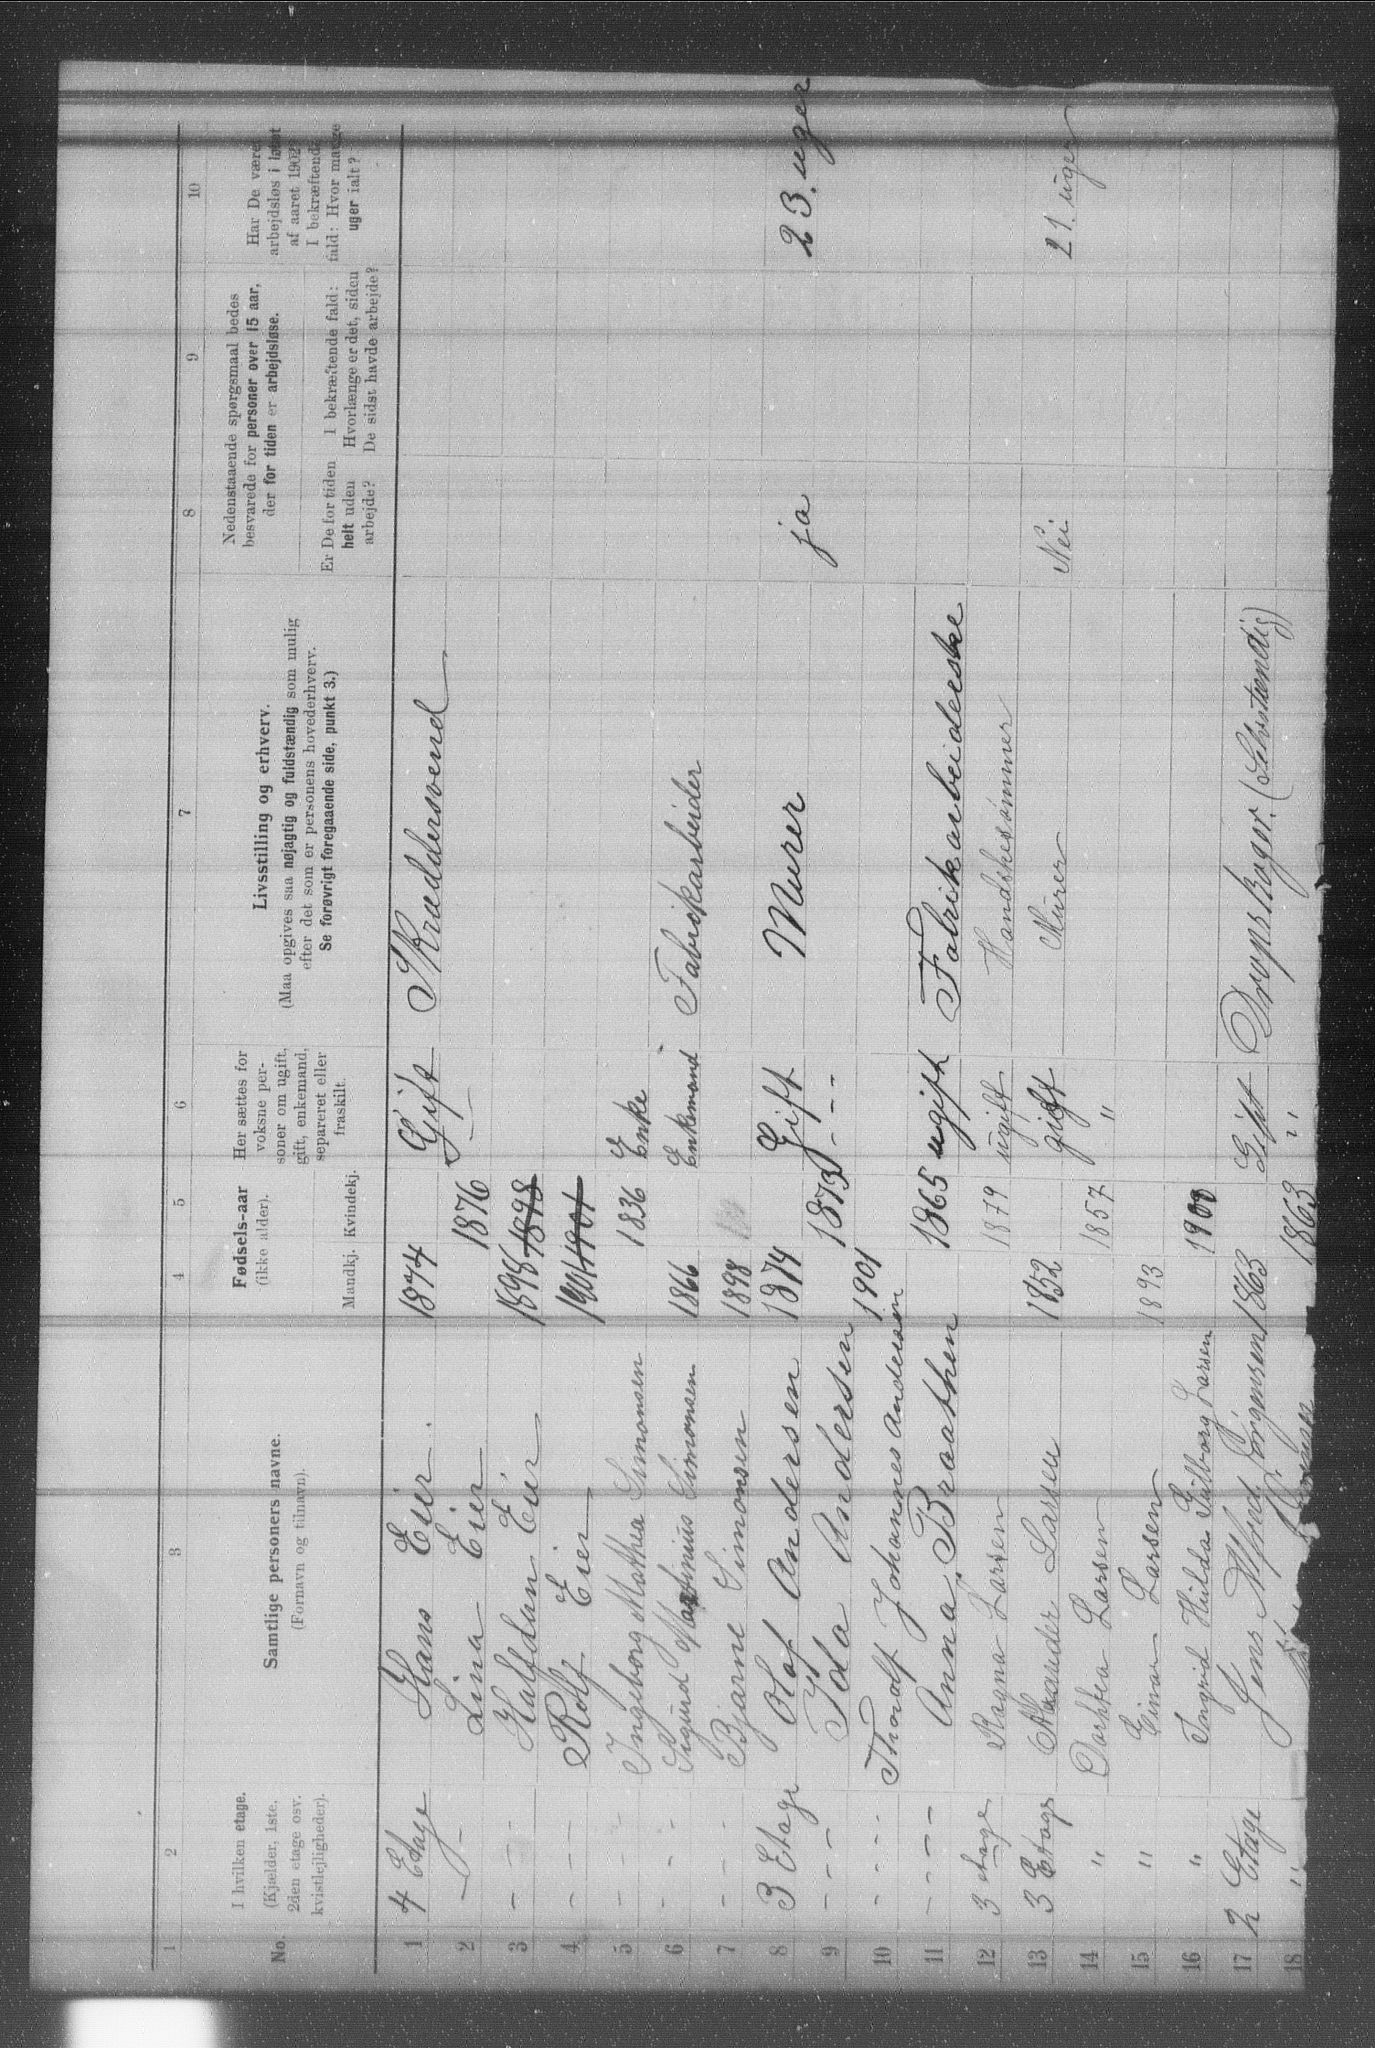 1 2 3 4 5 6 7 8 9 10
No.
I hvilken etage.
(Kjælder, 1ste,
2den etage osv.
kvistlejligheder).
Samtlige personers navne.
(Fornavn og tilnavn).
Fødsels-aar
(ikke alder).
Mandkj. Kvindekj.
Her sættes for
voksne per-
soner om ugift,
gift, enkemand,
separeret eller
fraskilt.
Livsstilling og erhverv.
(Maa opgives saa nøjagtig og fuldstændig som mulig
efter det som er personens hovederhverv.
Se forøvrigt foregaaende side, punkt 3.)
Nedenstaaende spørgsmaal bedes
besvarede for personer over 15 aar,
der for tiden er arbejdsløse.
Er De for tiden
helt uden
arbejde?
I bekræftende fald:
Hvorlænge er det, siden
De sidst havde arbejde?
Har De været
arbejdsløs i løbet
af aaret 1902
I bekræftende
fald: Hvor mange
uger ialt?
1 4 Etage Hans Eier 1874 Gift Skræddersvend
2 – Lina Eier 1876 –
3 – – – Halfdan Eier 1898 1898
4 – – – Rolf Eier 1901 1901
5 – – – Ingeborg Mathea Simonsen 1836 Enke
6 – – – Sigurd Martinius Simonsen 1866 Enkemand Fabrikarbeider
7 – – Bjarne Simonsen 1898
8 3 Etage Olaf Andersen 1874 Gift Murer ja 23. uger
9 – – – Ida Andersen 1873 – – –
10 – – – Thoralf Johannes Andersen 1901
11 – – – Anna Braathen 1865 ugift Fabrikarbeiderske
12 3 etage Ragna Larsen 1879 ugift Handskesømmer
13 3 Etage Larsen 1852 gift Murer Nei 21. uger
14 " Dorthea Larsen 1857 "
15 " Einar Larsen 1893
16 " Ingrid Hulda Larsen 1900
17 2 Etage Jens Alfred Jørgensen 1863 Gift Dropskoger. (Selvstændig)
18 " 1863 "